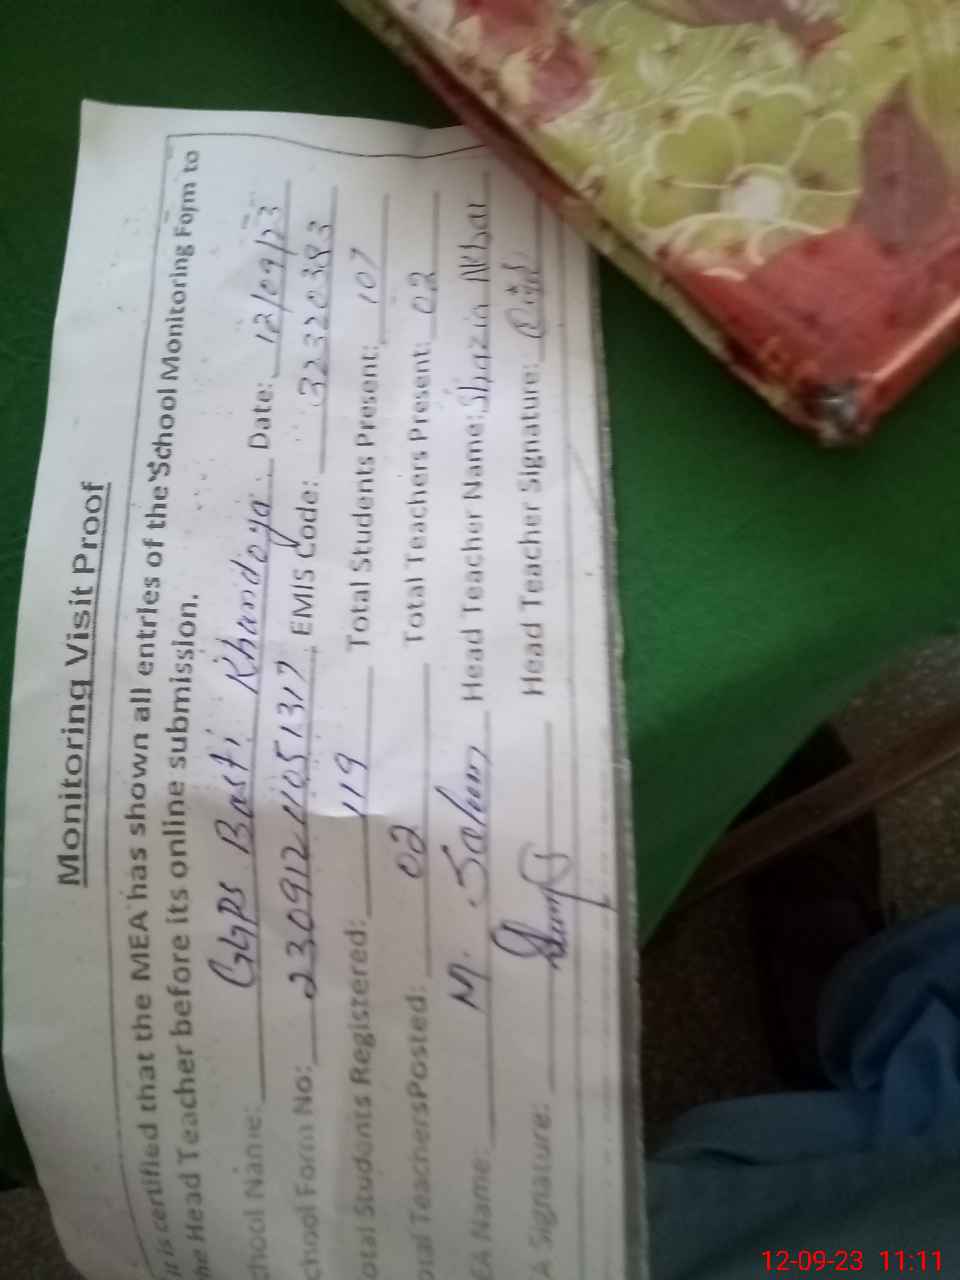 Monitoring Visit Proof
It is certified that the MEA has shown all entries of the School Monitoring Form to
the Head Teacher before its online submission.
chool Name: GGPS Basti Khandoya Date: 12/09/23
chool Form No: 23091211051317 EMIS Code: 32320383
otal Students Registered: 119 Total Students Present: 107
otal TeachersPosted: 02 Total Teachers Present: 02
EA Name: M. Salim Head Teacher Name: Shazia
A Signature: Head Teacher Signature:
12-09-23 11:11